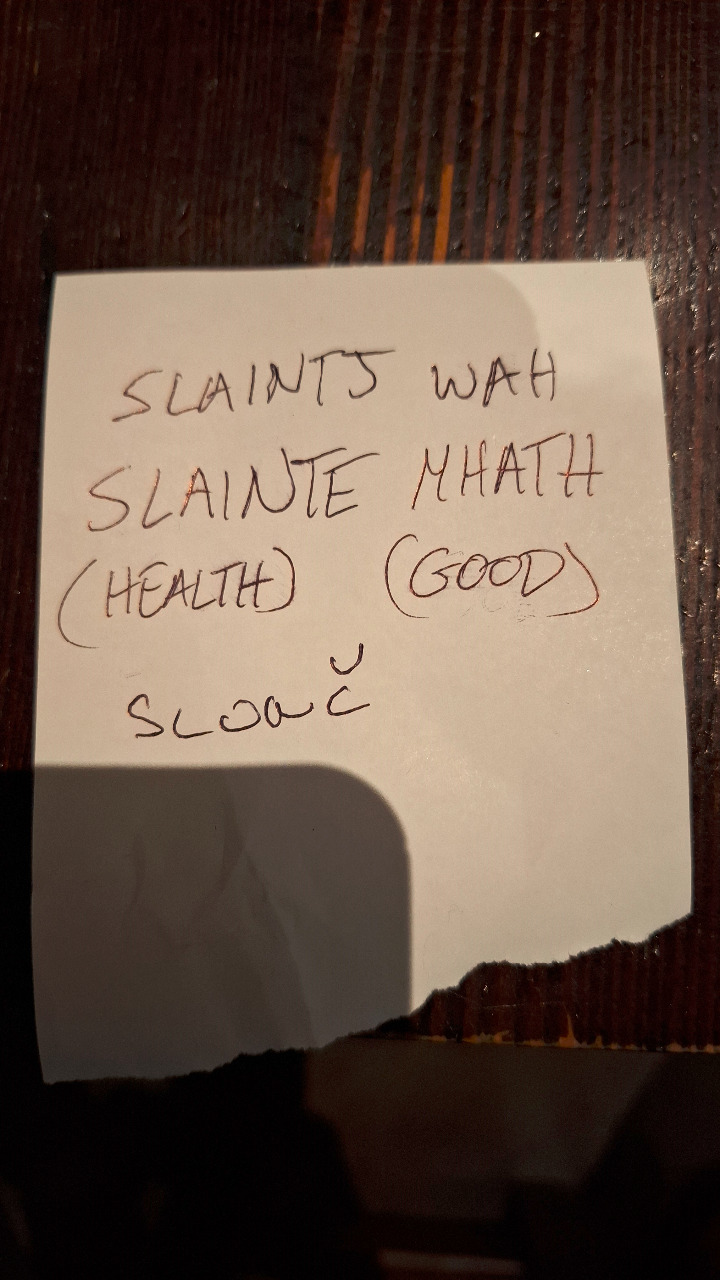 SLAINTJ WAH
SLAINTE MHATH
(HEALTH) (GOOD)
SLOUČ